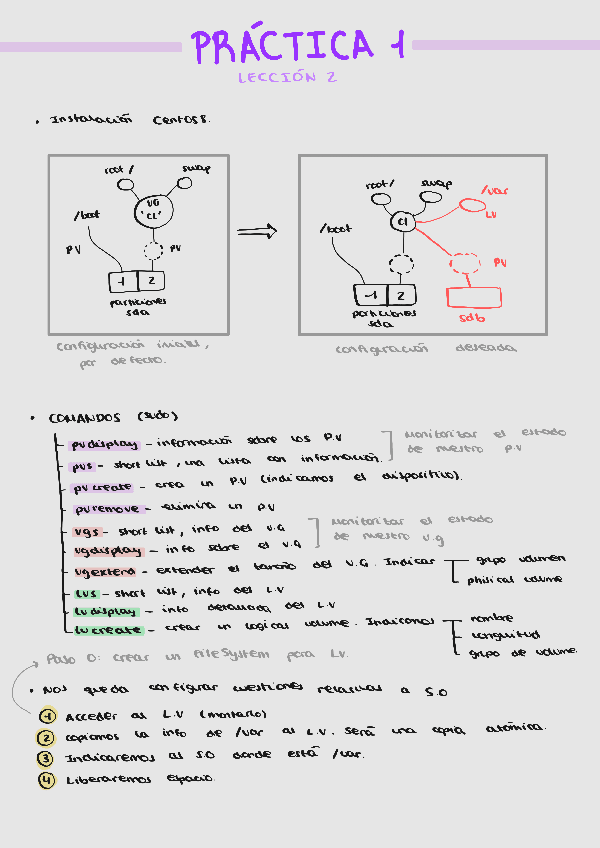 PRÁCTICA 1
LECCIÓN 2
• Instalación CentOS8.
root /
swap
VG
'CL'
/boot
PV
PV
1 2
particiones
sda
configuración inicial,
por defecto.
root/
swap
/var
LV
Cl
/boot
PV
1 2
particiones
sda
sdb
configuración deseada
• COMANDOS (sudo)
pvdisplay - información sobre los P.V
pvs - short list, una lista con información.
Monitorizar el estado
de nuestro p.v
pvcreate - crea un P.V (indicamos el dispositivo).
pvremove - elimina un PV
vgs - short list, info del V.G
vgdisplay - info sobre el V.G
Monitorizar el estado
de nuestro v.g
vgextend - extender el tamaño del V.G. Indicar
grupo volumen
phisical volume
lvs - short list, info del L.V
lvdisplay - info detallada del L.V
lvcreate - crear un logical volume. Indicamos
nombre
longuitud
grupo de volume.
Paso 0: crear un fileSystem para LV.
• Nos queda configurar cuestiones relativas a S.O
1 Acceder al L.V (montarlo)
2 copiamos la info de /var al L.V. Será una copia atómica.
3 Indicaremos al S.O donde está /var.
4 Liberaremos espacio.